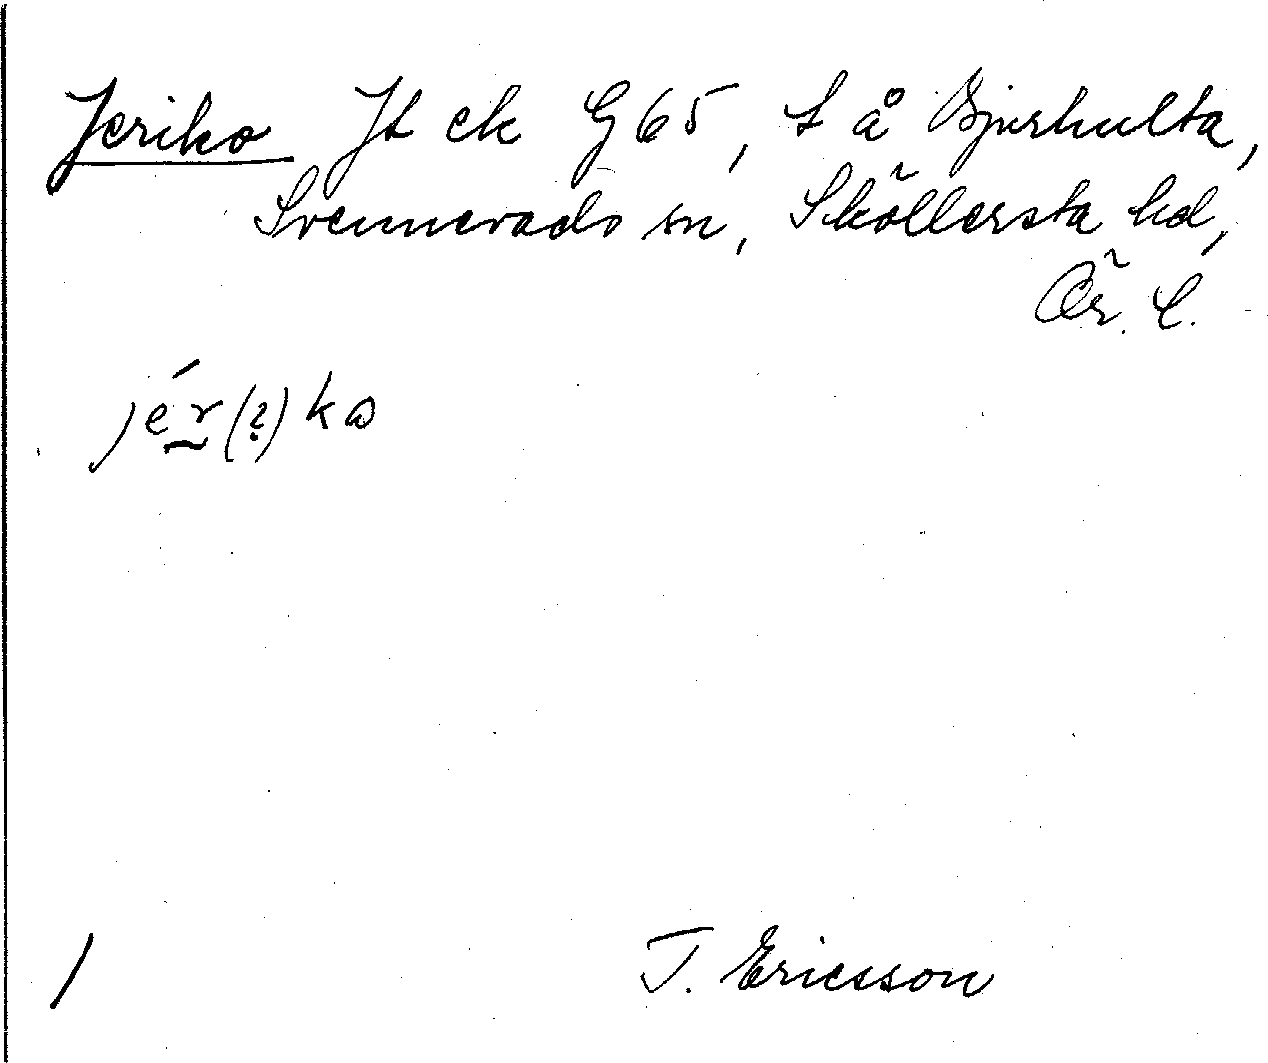 Jeriko Jt ek G 65, t å Bjurhulta,
Svennevads sn, Sköllersta hd,
Ör. l.
jér(?)ko
T. Ericsson